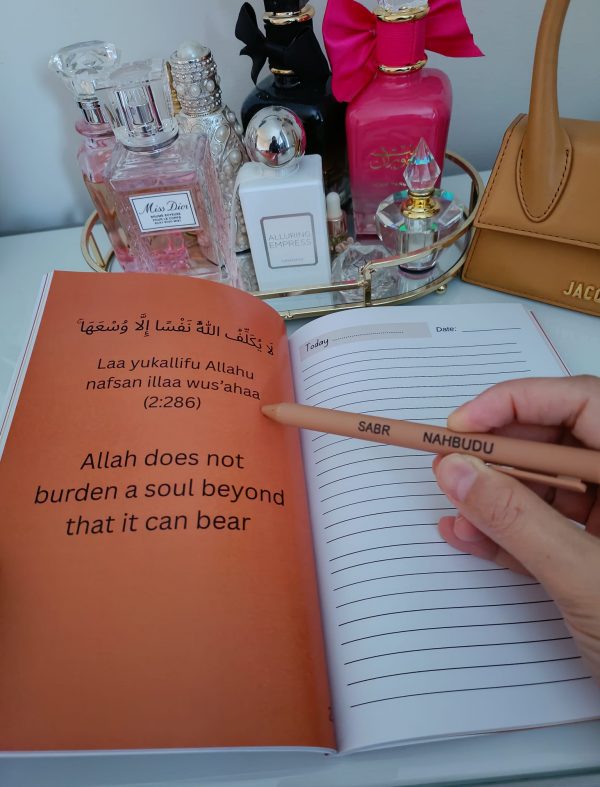 Miss Dior
ALLURING
EMPRESS
JACQ
لَا يُكَلِّفُ اللَّهُ نَفْسًا إِلَّا وُسْعَهَا ۚ
Laa yukallifu Allahu
nafsan illaa wus'ahaa
(2:286)
Allah does not
burden a soul beyond
that it can bear
Today
Date:
SABR NAHBUDU